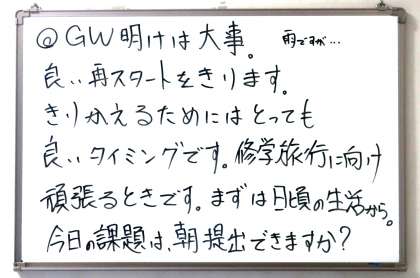 ◎GW明けは大事。 雨ですが…
良い再スタートをきります。
きりかえるためにはとっても
良いタイミングです。修学旅行に向け
頑張るときです。まずは日頃の生活から。
今日の課題は、朝提出できますか?